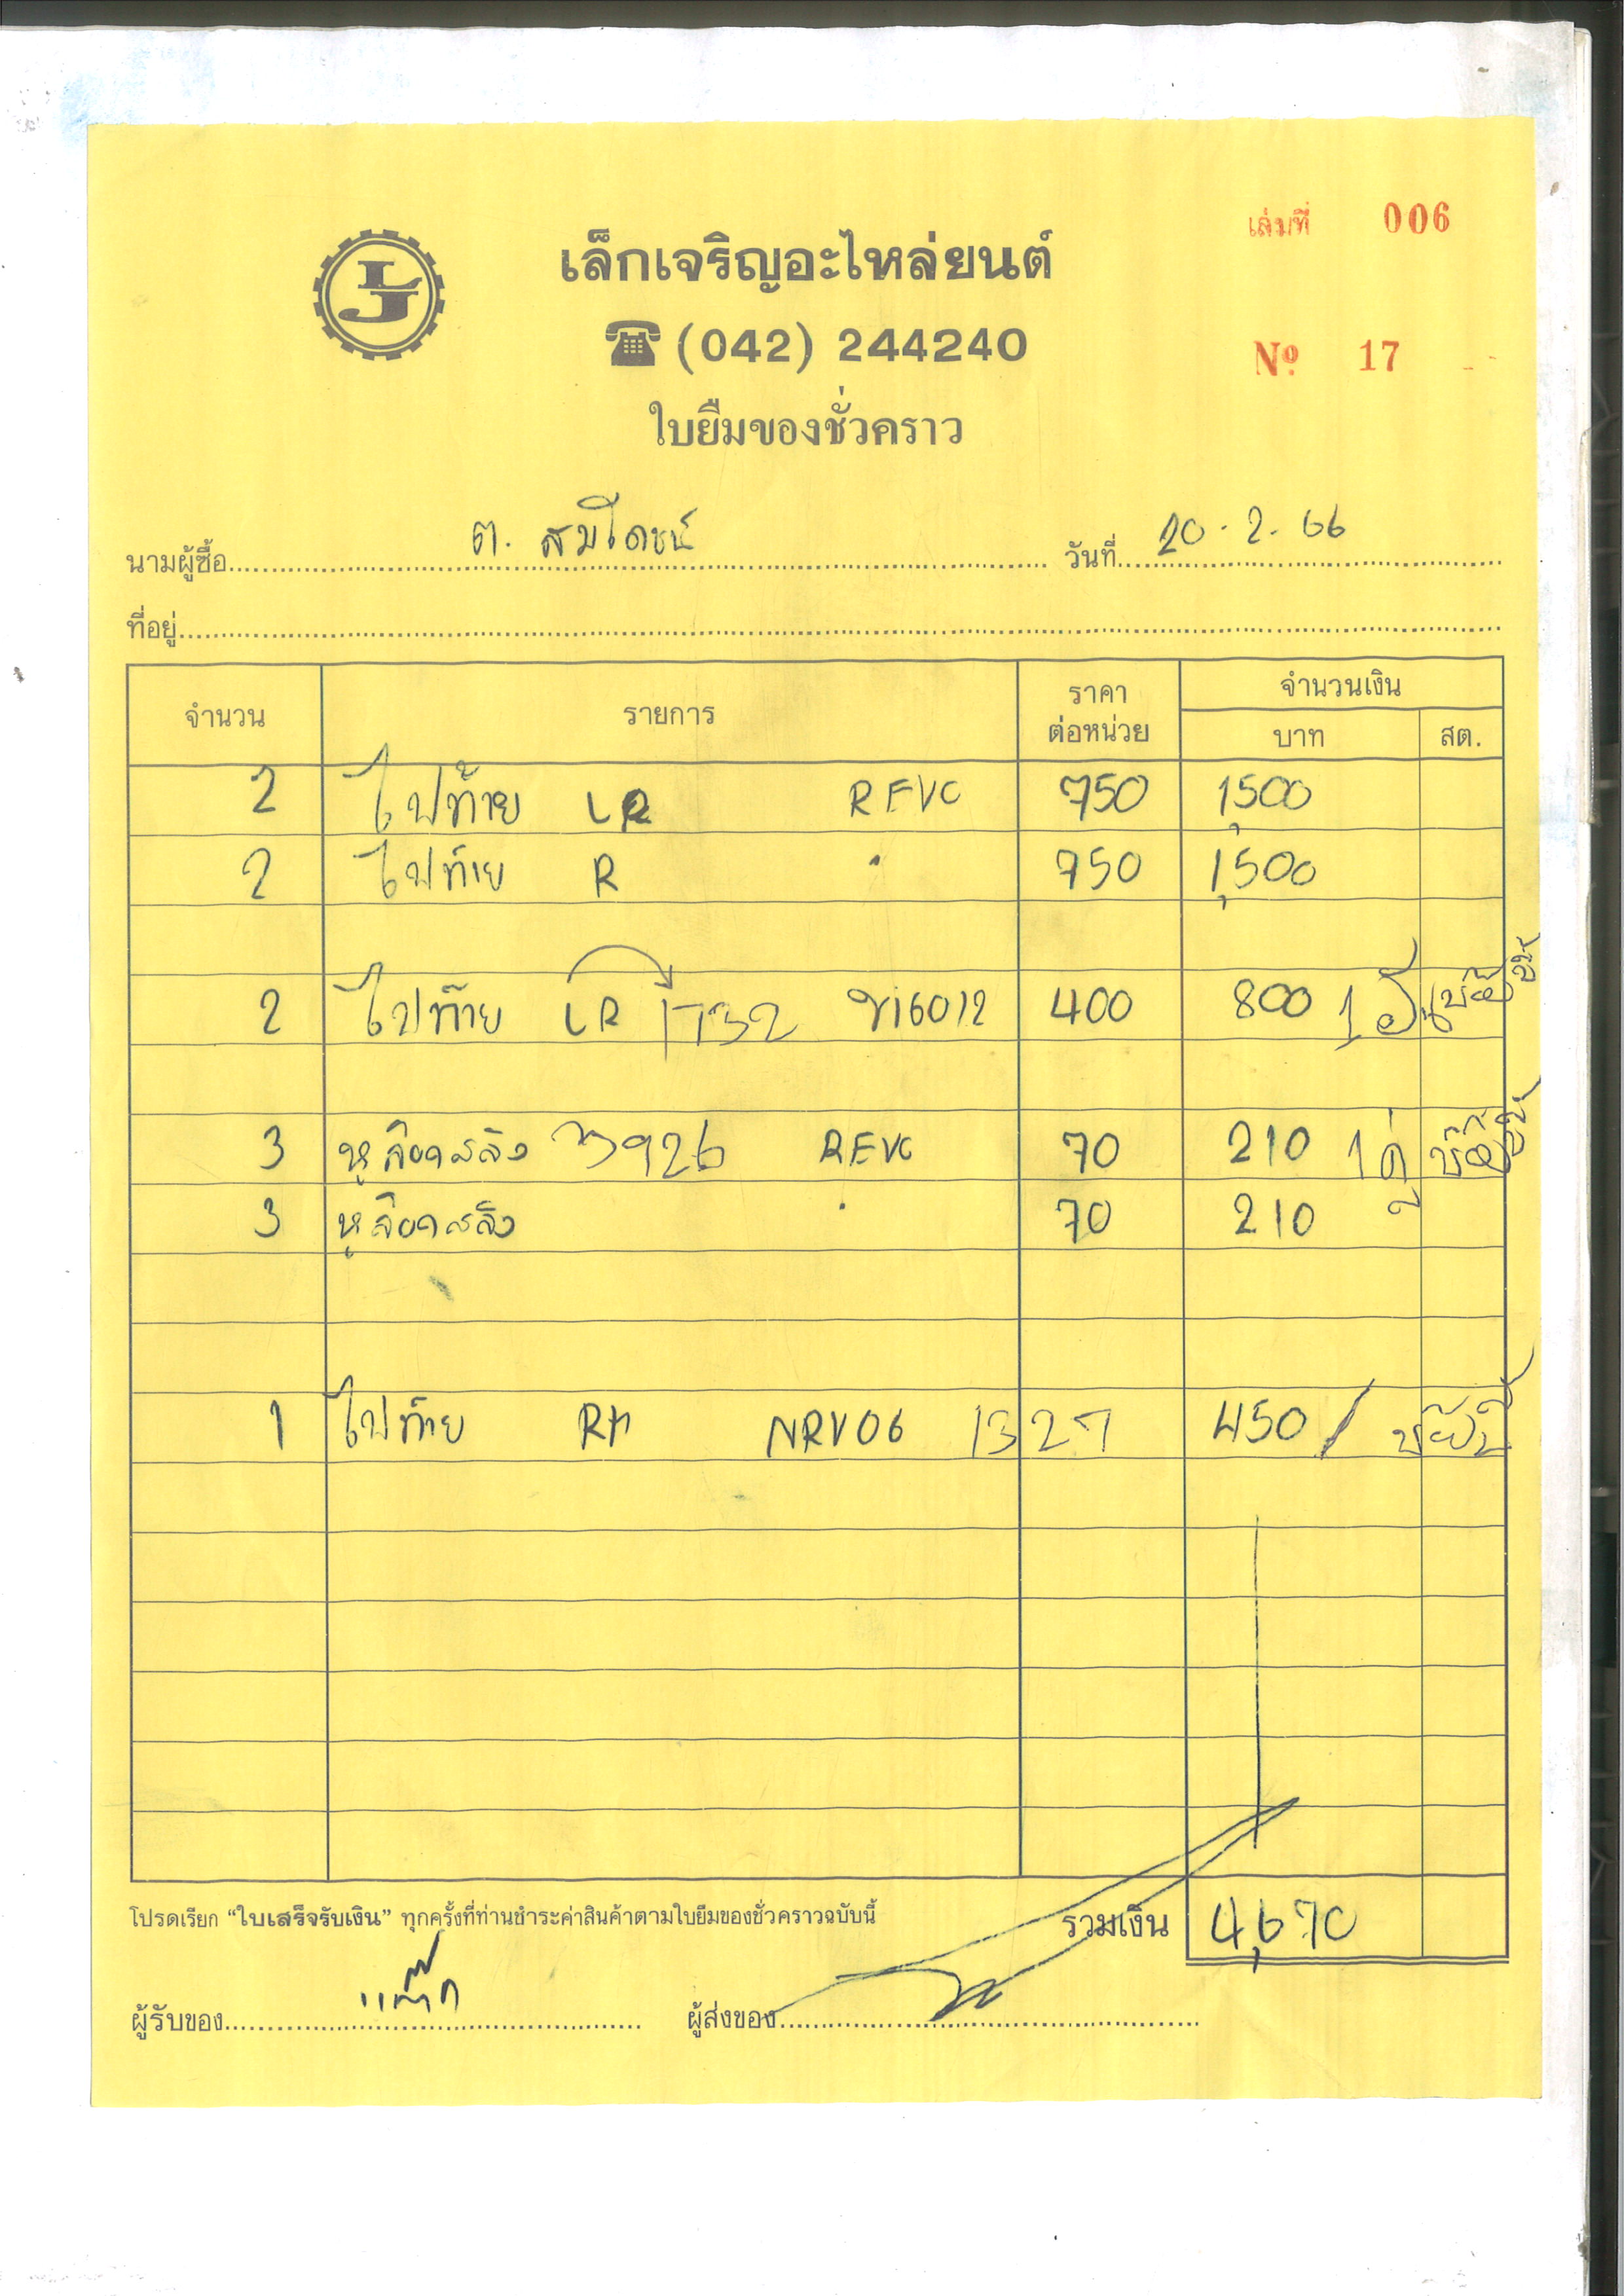 เล่มที่ 006
LJ
เล็กเจริญอะไหล่ยนต์
(042) 244240
Nº 17
ใบยืมของชั่วคราว
นามผู้ซื้อ ต. สมโภชน์ วันที่ 20-2-66
ที่อยู่
จำนวน รายการ ราคาต่อหน่วย จำนวนเงิน บาท สต.
2 ไฟท้าย LR REVO 750 1,500
2 ไฟท้าย R " 750 1,500
2 ไฟท้าย LR 1732 400 800 1 อัน
3 3926 REVO 70 210 1 คู่
3 " 70 210
1 ไฟท้าย RH NRV06 1327 450 /
โปรดเรียก “ใบเสร็จรับเงิน” ทุกครั้งที่ท่านชำระค่าสินค้าตามใบยืมของชั่วคราวฉบับนี้ รวมเงิน 4,670
ผู้รับของ ผู้ส่งของ